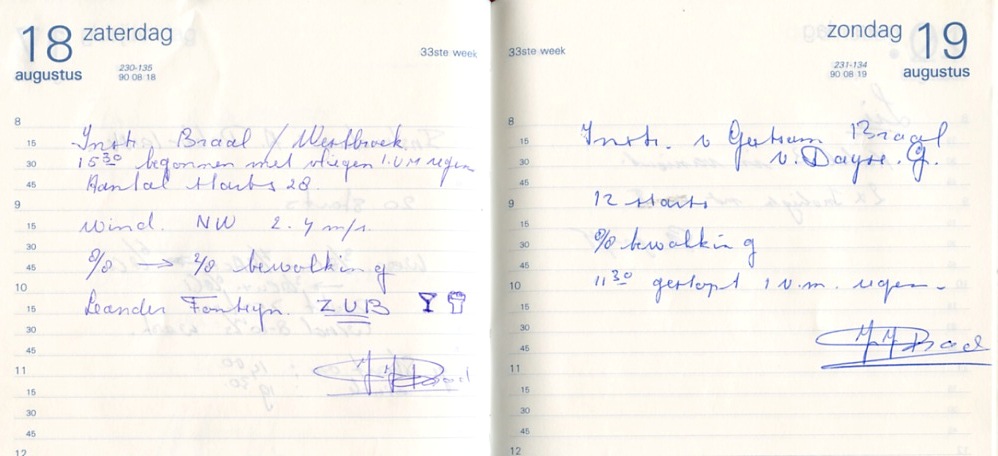 18 zaterdag
augustus
230-135
90 08 18
33ste week
8
15 Instr. Braal / Westbroek
30 15 30 begonnen met vliegen i.v.m regen
45 Aantal starts 28.
9
15 wind. NW 2.4 m/s.
30
45 8/8 → 2/8 bewolking
10
15 Leander Z.U.B
30
45
11
15
30
45
12
zondag 19
augustus
231-134
90 08 19
33ste week
8
15 Instr. v Braal
30 v.
45
9 12 starts
15
30 8/8 bewolking
45
10 11 30 gestopt i v.m. regen -
15
30
45
11
15
30
45
12